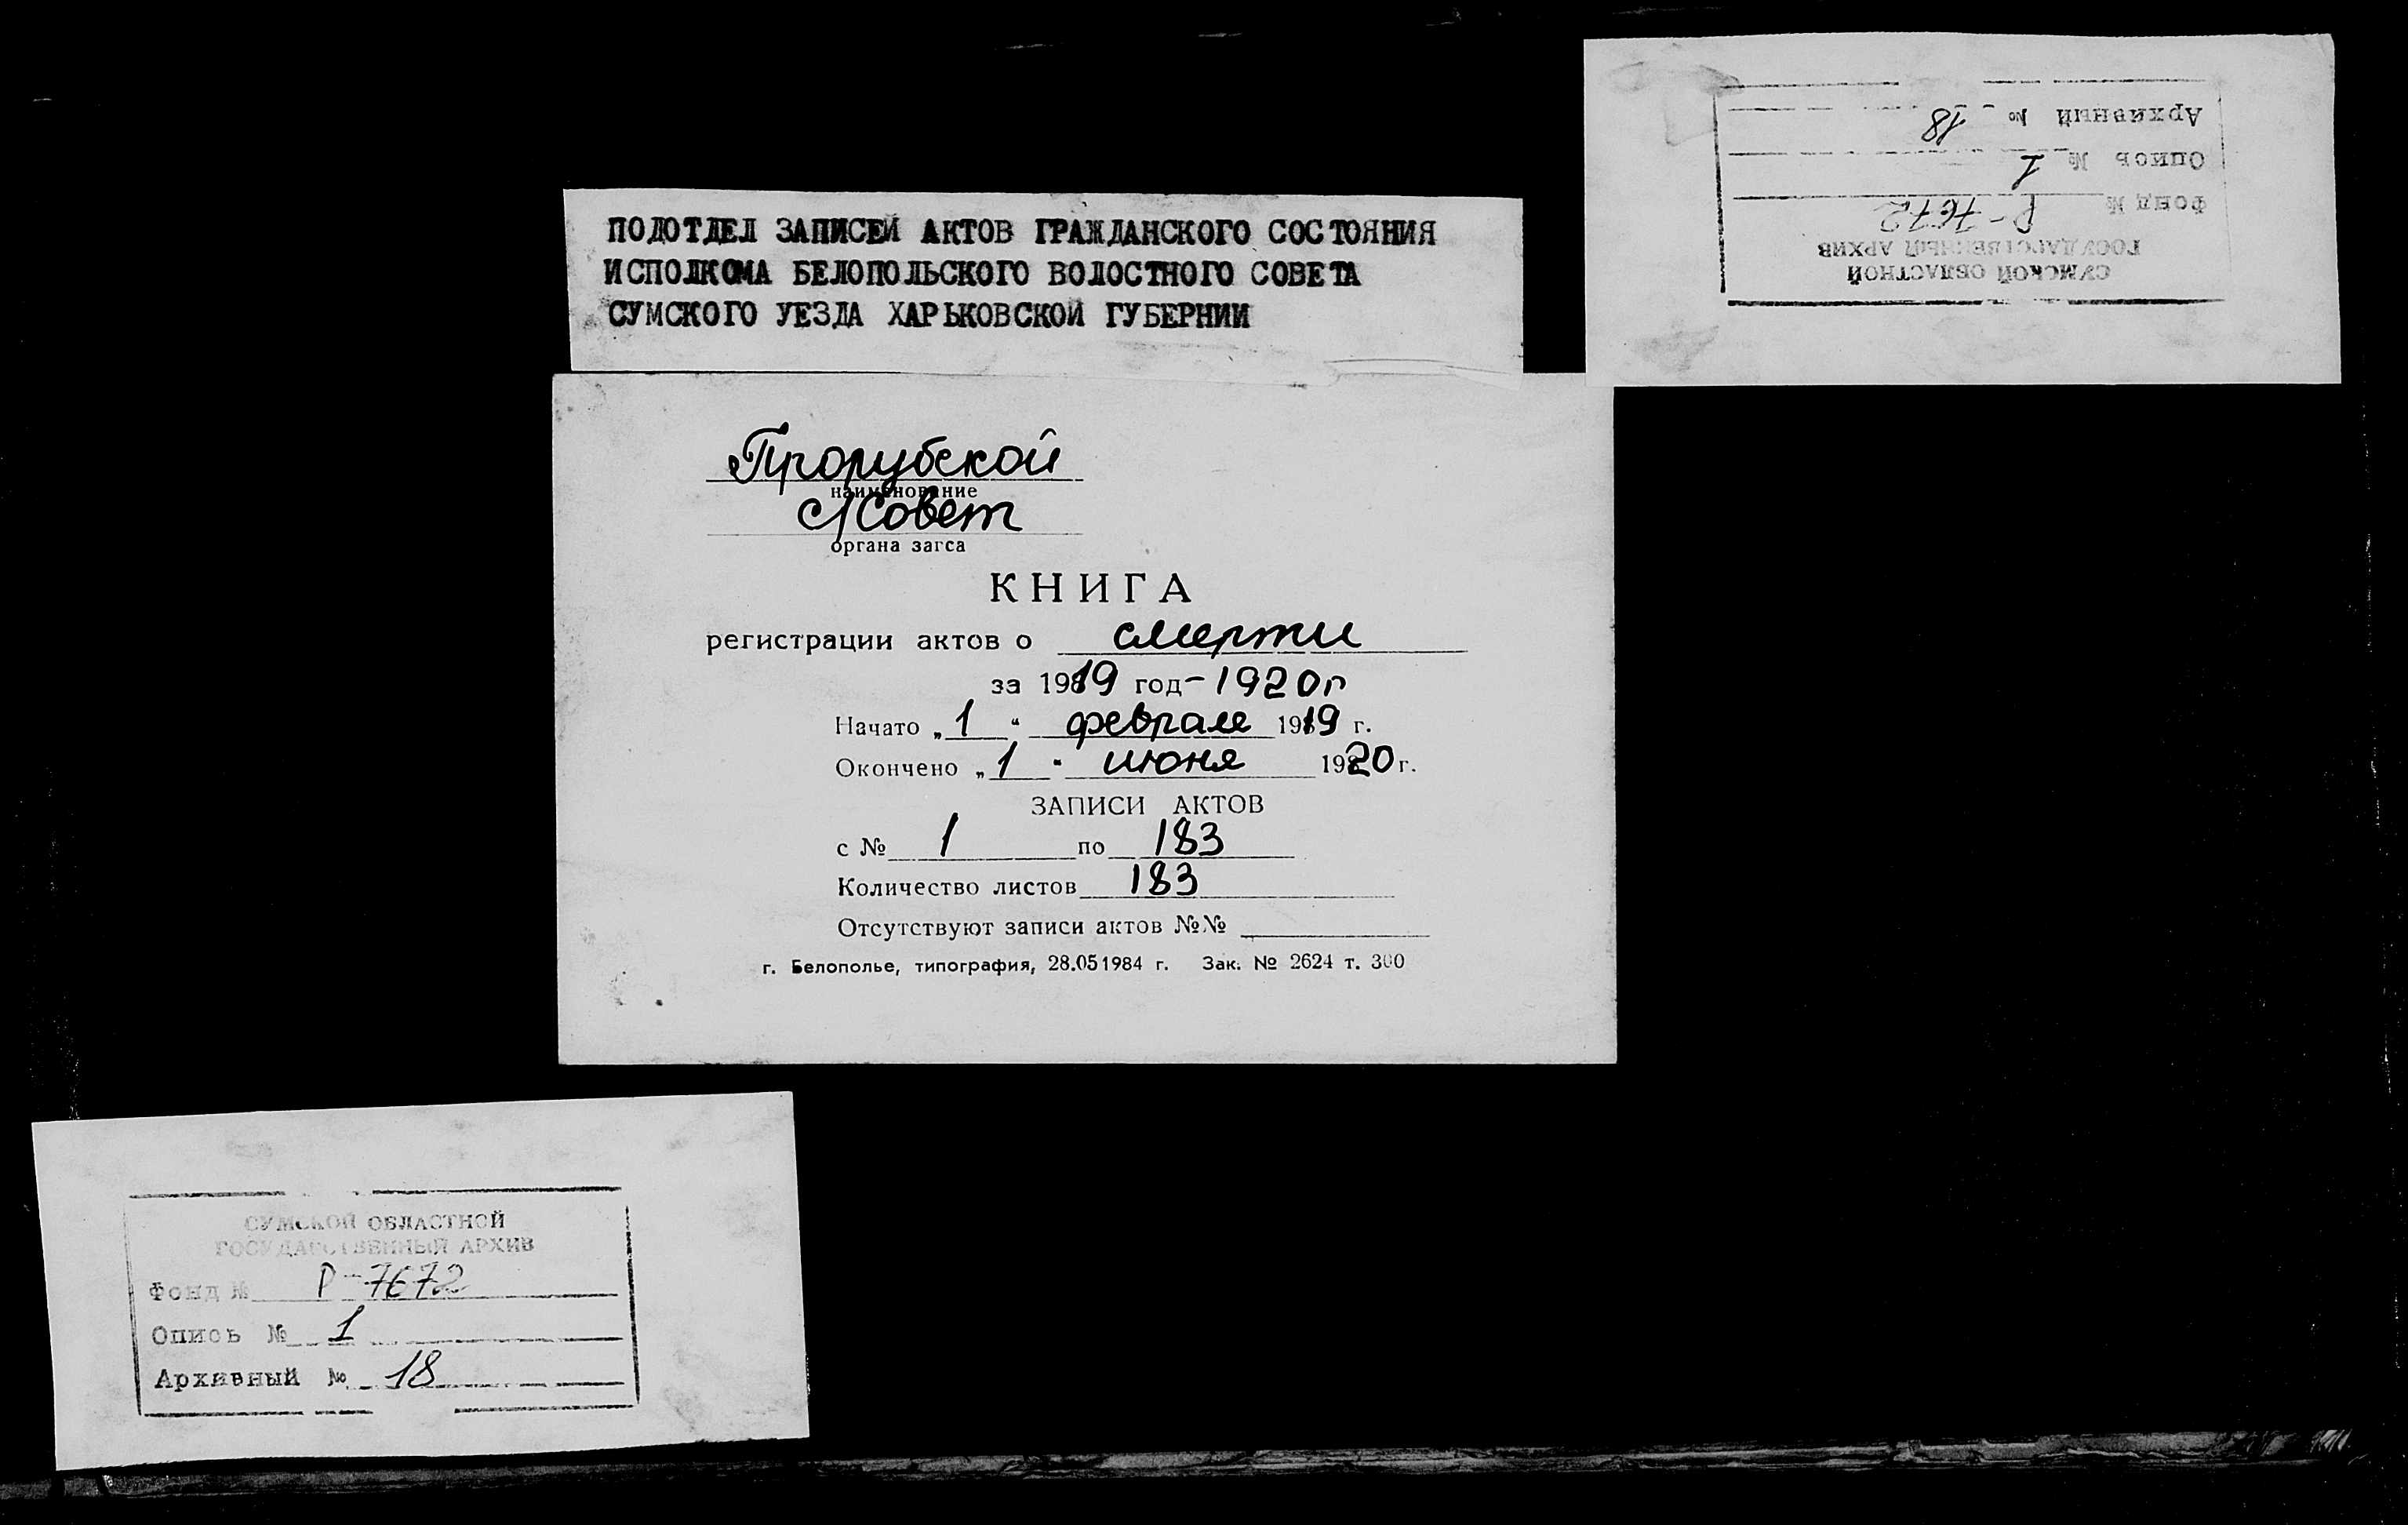 ПОДОТДЕЛ ЗАПИСЕЙ АКТОВ ГРАЖДАНСКОГО СОСТОЯНИЯ
ИСПОЛКОМА БЕЛОПОЛЬСКОГО ВОЛОСТНОГО СОВЕТА
СУМСКОГО УЕЗДА ХАРЬКОВСКОЙ ГУБЕРНИИ
Прорубской
наименование
с/Совет
органа загса
КНИГА
регистрации актов о смерти
за 1919 год - 1920 г
Начато „1“ февраля 1919 г.
Окончено „1“ июня 1920 г.
ЗАПИСИ АКТОВ
с № 1 по 183
Количество листов 183
Отсутствуют записи актов №№
г. Белополье, типография, 28.051984 г. Зак. № 2624 т. 300
СУМСКОЙ ОБЛАСТНОЙ
ГОСУДАРСТВЕННЫЙ АРХИВ
Фонд № Р-7672
Опись № 1
Архивный № 18
СУМСКОЙ ОБЛАСТНОЙ
ГОСУДАРСТВЕННЫЙ АРХИВ
Фонд № Р-7672
Опись № 1
Архивный № 18